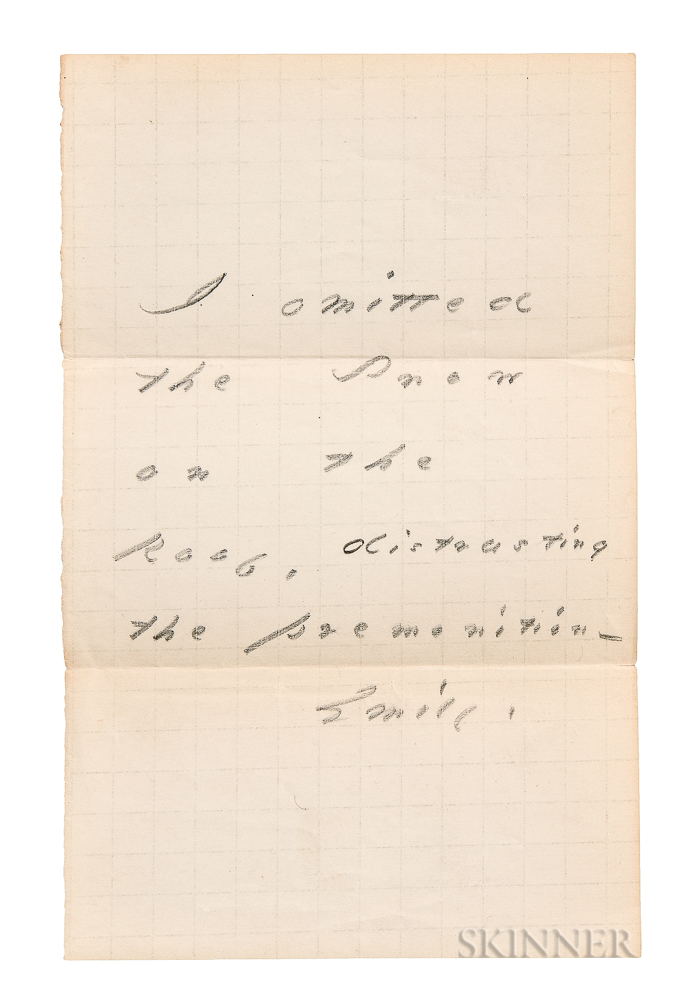 I omitted
the Snow
on the
Roof, distrusting
the premonition_
Emily.
SKINNER